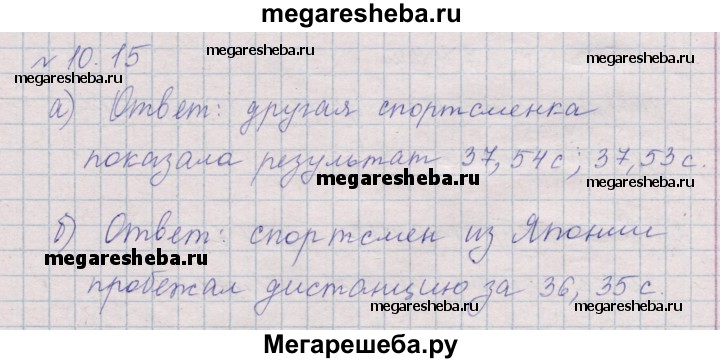 megaresheba.ru
№ 10.15
megaresheba.ru megaresheba.ru
megaresheba.ru
а) Ответ: другая спортсменка
показала результат 37,54 с; 37,53 с.
megaresheba.ru megaresheba.ru
megaresheba.ru
б) Ответ: спортсмен из Японии
megaresheba.ru megaresheba.ru
пробежал дистанцию за 36, 35 с.
megaresheba.ru megaresheba.ru
Мегарешеба.ру